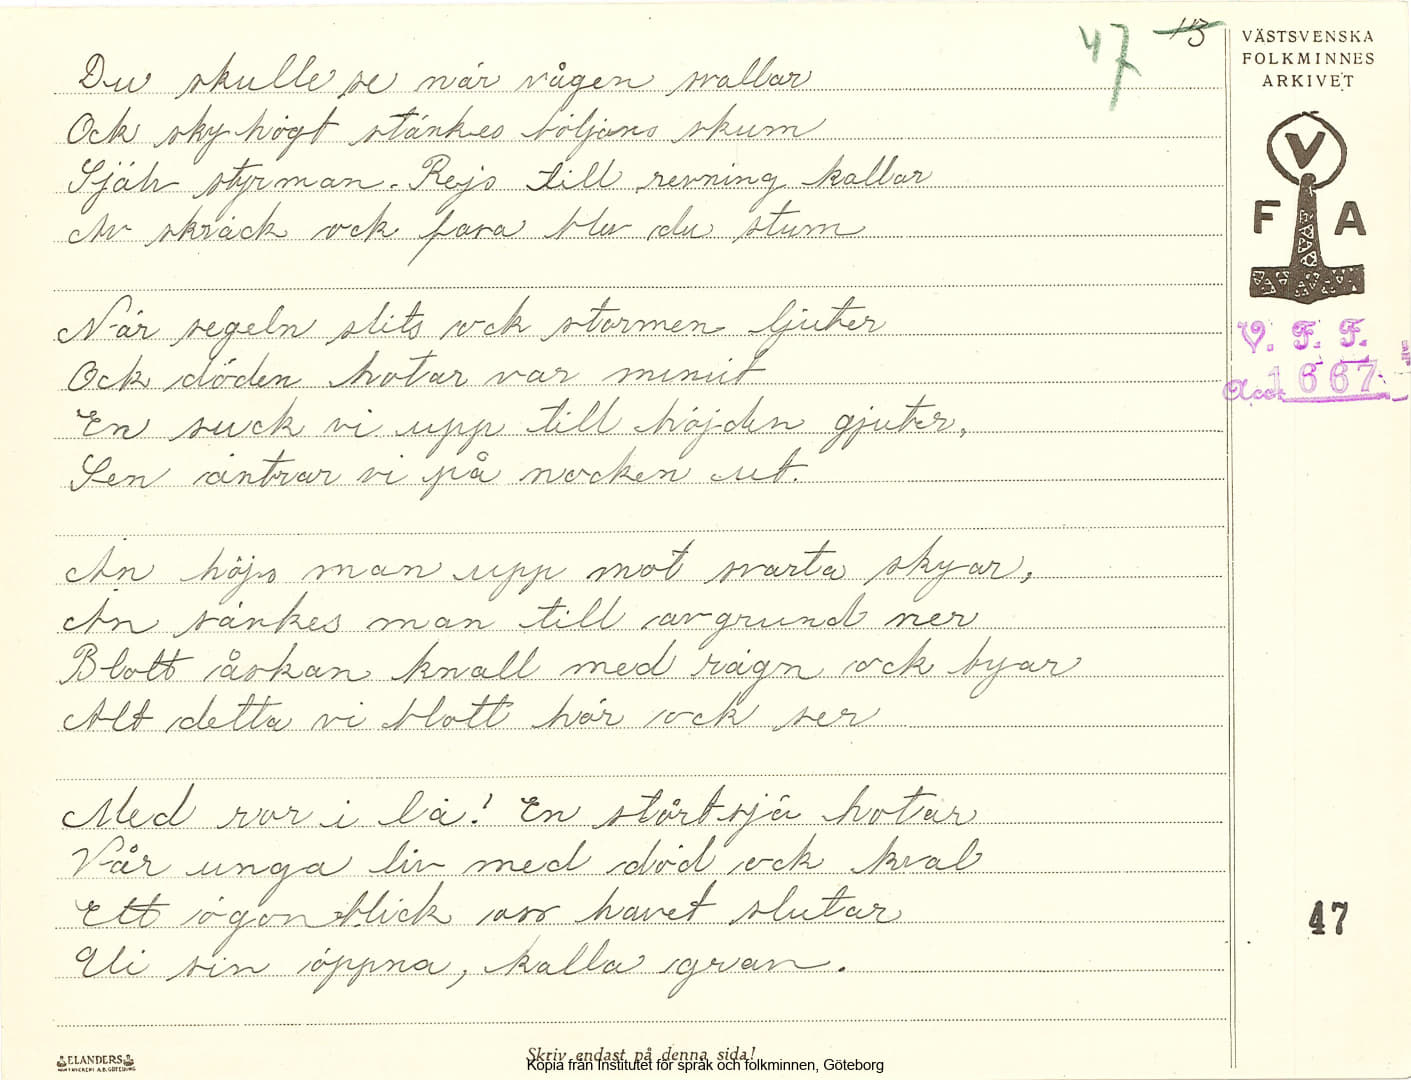 47 113
VÄSTSVENSKA
FOLKMINNES
ARKIVET
V
F A
V. F. F.
Acc. 1667
Du skulle se när vågen svallar
Ock sky högt stänkes böljans skum
Sjäh styrman. Rejs till revning kallar
Av skräck ock fara blev du stum
När segeln slits ock stormen ljuter
Ock döden hotar var minut
En suck vi upp till höjden gjuter,
Sen äntrar vi på nocken ut.
Än höjs man upp mot svarta skyar,
Än sänkes man till avgrund ner
Blott åskan knall med rägn ock byar
Alt detta vi blott hör ock ser
Med ror i lä! En störtsjö hotar
Vår unga liv med död ock kval
Ett ögonblick oss havet slutar
Uti sin öppna, kalla grav.
47
ELANDERS
BOKTRYCKERI A.B. GÖTEBORG
Skriv endast på denna sida!
Kopia från Institutet för språk och folkminnen, Göteborg